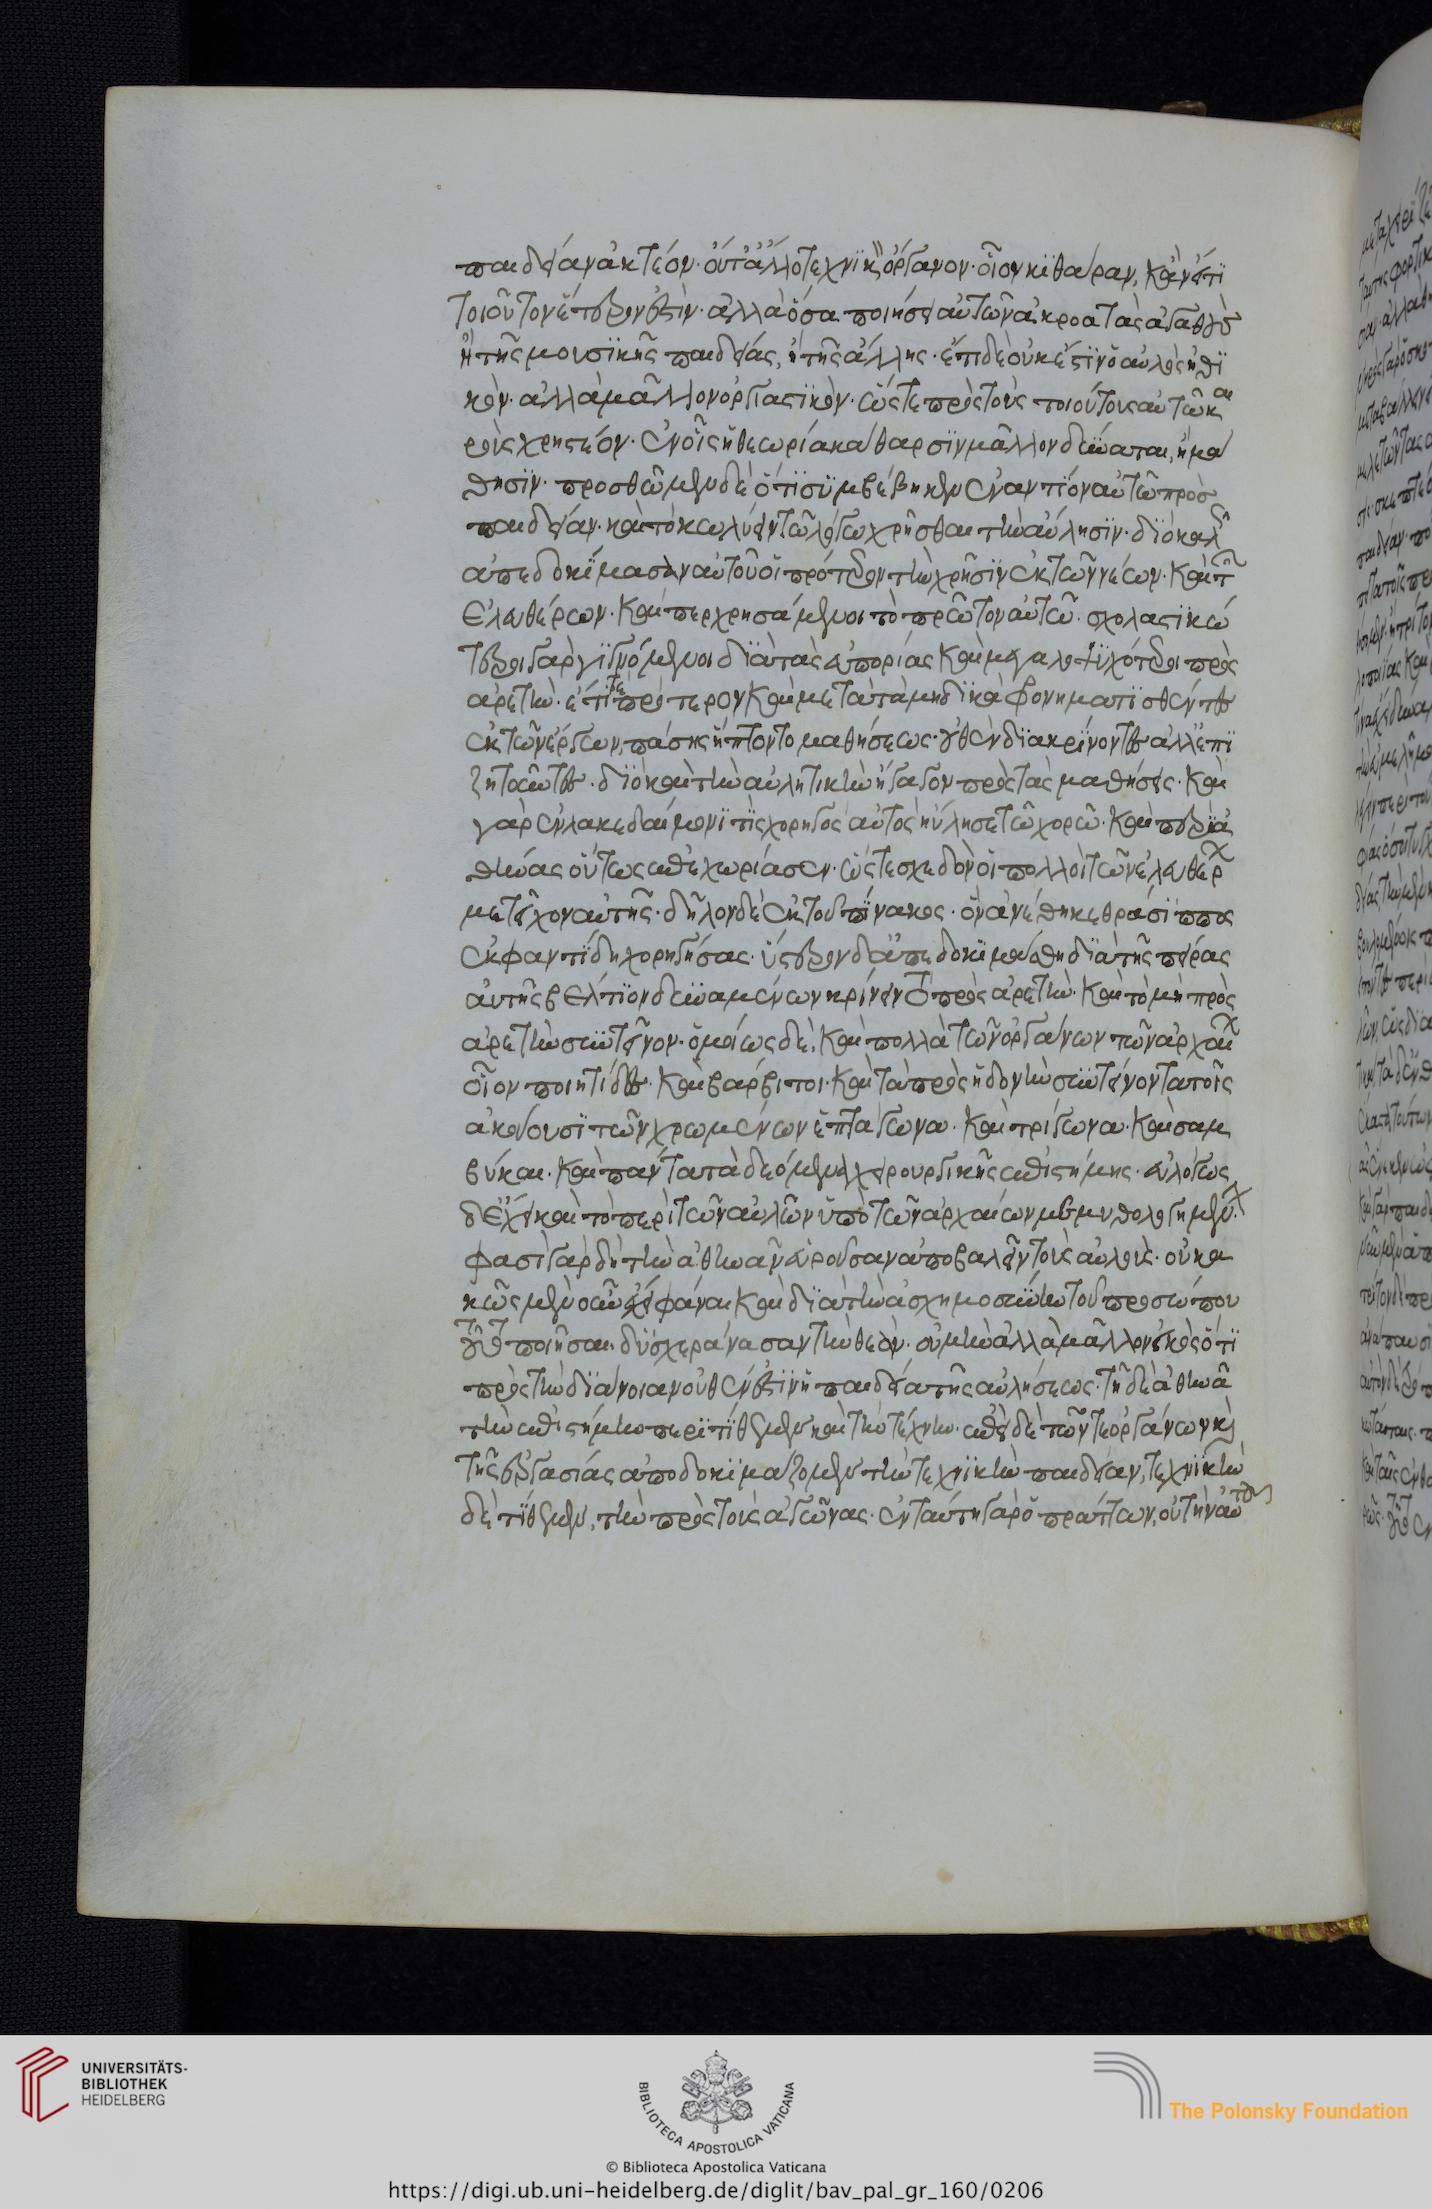 παιδείαν ἀκτέον· οὔτ' ἄλλο τεχνϊκὸν ὄργανον· οἷον κϊθάραν, κἂν εἴ τϊ
τοιοῦτον ἕτερον ἐστὶν· ἀλλὰ ὅσα ποιήσει αὐτῶν ἀκροατὰς ἀγαθοὺς
ἢ τῆς μουσϊκῆς παιδείας, ἢ τῆς ἄλλης· ἔτι δὲ οὐκ ἔστϊν ὁ αὐλὸς ἠθϊ
κὸν· ἀλλὰ μᾶλλον ὀργιαστϊκὸν· ὥστε πρὸς τοὺς τοιούτους αὐτῶ και
ροὺς χρηστέον· ἐν οἷς ἡ θεωρία κάθαρσϊν μᾶλλον δύναται, ἢ μά
θησϊν· προσθῶμεν δὲ ὅτϊ συμβέβηκεν ἐναντίον αὐτῶ πρὸς
παιδείαν· καὶ τὸ κωλύειν τῶ λόγω χρῆσθαι τὴν αὔλησϊν· διὸ καλῶς
ἀπεδοκίμασαν αὐτοῦ οἱ πρότερον τὴν χρῆσϊν ἐκ τῶν νέων· καὶ τῶν
ἐλευθέρων· καίπερ χρησάμενοι τὸ πρῶτον αὐτῶ· σχολαστϊκώ
τεροι γὰρ γϊγνόμενοι διὰ τὰς εὐπορίας καὶ μεγαλοψυχότεροι πρὸς
ἀρετὴν· ἔτϊ τε πρότερον καὶ μετὰ τὰ μηδϊκὰ φρονηματϊσθέντες
ἐκ τῶν ἔργων, πάσης ἥπτοντο μαθήσεως· οὐθὲν διακρίνοντες ἀλλ' ἐπϊ
ζητοῦντες· διὸ καὶ τὴν αὐλητικὴν ἤγαγον πρὸς τὰς μαθήσεις· καὶ
γὰρ ἐν λακεδαίμονϊ τὶς χορηγὸς αὐτὸς ηὔλησε τῶ χορῶ· καὶ περὶ ἀ
θήνας οὕτως ἐπεχωρίασεν· ὥστε σχεδὸν οἱ πολλοὶ τῶν ἐλευθέρων
μετεῖχον αὐτῆς· δῆλον δὲ ἐκ τοῦ πίνακος· ὃν ἀνέθηκε θράσϊππος
ἐκφαντίδη χορηγήσας· ὕστερον δ' ἀπεδοκιμάσθη διὰ τῆς πείρας
αὐτῆς βέλτϊον δυναμένων κρίνειν τὸ πρὸς ἀρετὴν· καὶ τὸ μὴ πρὸς
ἀρετὴν συντεῖνον· ὁμοίως δὲ, καὶ πολλὰ τῶν ὀργάνων τῶν ἀρχαίων
οἷον πηκτίδες· καὶ βάρβιτοι· καὶ τὰ πρὸς ἡδονὴν συντείνοντα τοῖς
ἀκούουσϊ τῶν χρωμένων ἑπτάγωνα· καὶ τρίγωνα· καὶ σαμ
βύκαι· καὶ πάντα τὰ δεόμενα χειρουργικῆς ἐπιστήμης· εὐλόγως
δ' ἔχει καὶ τὸ περὶ τῶν αὐλῶν ὑπὸ τῶν ἀρχαίων μεμυθολογημένον·
φασὶ γὰρ δὴ τὴν ἀθηνᾶν εὑροῦσαν ἀποβαλεῖν τοὺς αὐλοὺς· οὐ κα
κῶς μὲν οὖν ἔχει φάναι καὶ διὰ τὴν ἀσχημοσύνην τοῦ προσώπου
τοῦτο ποιῆσαι δυσχεράνασαν τὴν θεὸν· οὐ μὴν ἀλλὰ μᾶλλον εἰκὸς ὅτϊ
πρὸς τὴν διάνοιαν οὐθέν ἐστϊν ἡ παιδεία τῆς αὐλήσεως· τῆ δὲ ἀθηνᾶ
τὴν ἐπιστήμην περϊτίθεμεν καὶ τὴν τέχνην· ἐπεὶ δὲ τῶν τε ὀργάνων καὶ
τῆς ἐργασίας ἀποδοκϊμάζομεν τὴν τεχνϊκὴν παιδείαν, τεχνϊκὴν
δὲ τίθεμεν, τὴν πρὸς τοὺς ἀγῶνας· ἐν ταύτη γὰρ ὁ πράττων, οὐ τῆς αὐτοῦ
UNIVERSITÄTS-
BIBLIOTHEK
HEIDELBERG
BIBLIOTECA APOSTOLICA VATICANA
© Biblioteca Apostolica Vaticana
The Polonsky Foundation
https://digi.ub.uni-heidelberg.de/diglit/bav_pal_gr_160/0206